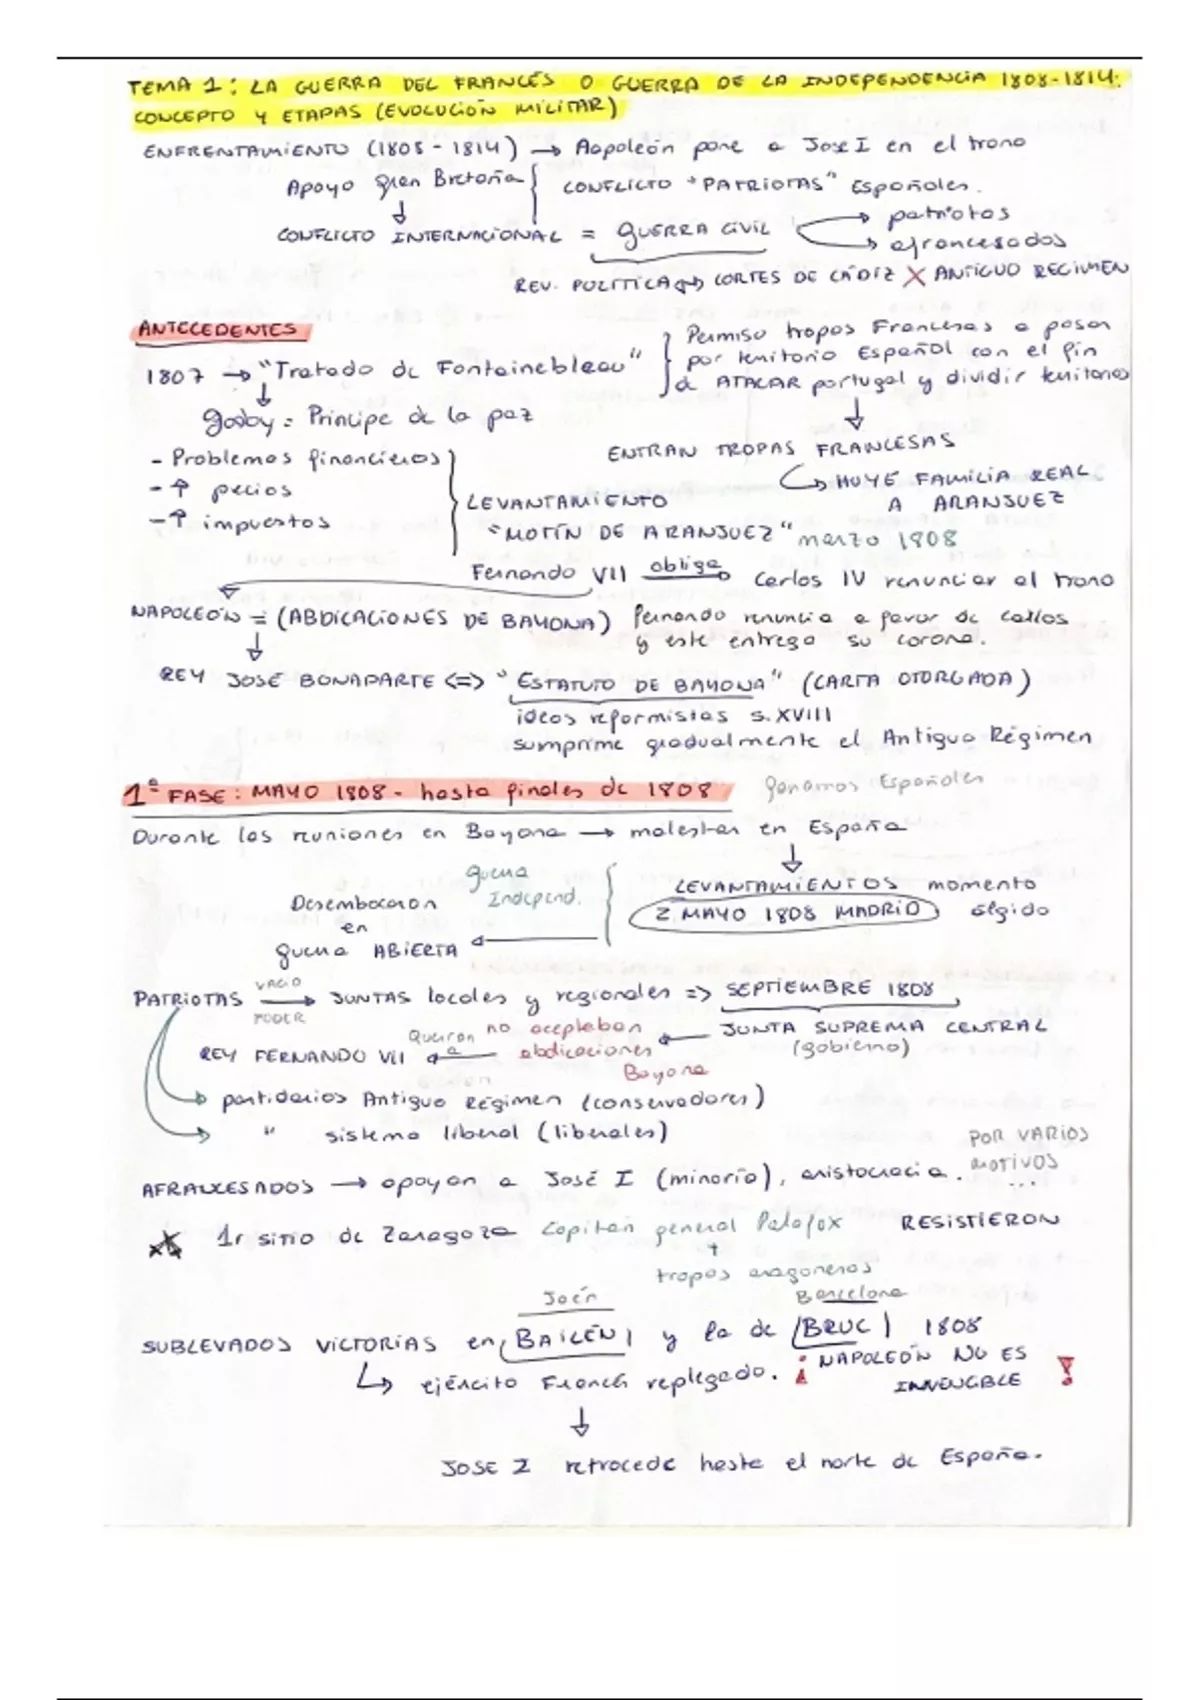 TEMA 1: LA GUERRA DEL FRANCÉS O GUERRA DE LA INDEPENDENCIA 1808-1814.
CONCEPTO Y ETAPAS (EVOLUCIÓN MILITAR)
ENFRENTAMIENTO (1808 - 1814) → Napoleón pone a José I en el trono
Apoyo gran Bretaña { CONFLICTO "PATRIOTAS" Españoles.
↓
CONFLICTO INTERNACIONAL = guERRA CIVIL → patriotas
→ afrancesados
REV. POLÍTICA ↔ CORTES DE CÁDIZ X ANTIGUO REGIMEN
ANTECEDENTES
1807 → "Tratado de Fontainebleau" } Permiso tropas Francesas a pasar
por territorio Español con el fin
de ATACAR portugal y dividir territorios
↓ ↓
godoy = Principe de la paz
ENTRAN TROPAS FRANCESAS
- Problemas financieros }
- ↑ precios
- ↑ impuestos
→ HUYE FAMILIA REAL
A ARANJUEZ
LEVANTAMIENTO
"MOTÍN DE ARANJUEZ" marzo 1808
Fernando VII obliga → Carlos IV renunciar al trono
NAPOLEÓN = (ABDICACIONES DE BAYONA) Fernando renuncia a favor de Carlos
y este entrega su corona.
↓
REY JOSÉ BONAPARTE <=> "ESTATUTO DE BAYONA" (CARTA OTORGADA)
ideas reformistas s. XVIII
sumprime gradualmente el Antiguo Régimen
1ª FASE: MAYO 1808 - hasta finales de 1808 ganamos Españoles
Durante las reuniones en Bayona → malestar en España
↓
guerra
Independ. { LEVANTAMIENTOS momento
2 MAYO 1808 MADRID álgido
Desembocaron
en
guerra ABIERTA ←
PATRIOTAS VACIO → PODER JUNTAS locales y regionales => SEPTIEMBRE 1808
JUNTA SUPREMA CENTRAL
(gobierno)
← no aceptaban
abdicaciones
Bayona
REY FERNANDO VII ← Querían a
→ partidarios Antiguo Régimen (conservadores)
→ " sistema liberal (liberales)
AFRANCESADOS → apoyan a José I (minoría), aristocracia. POR VARIOS
motivos
...
1r SITIO de Zaragoza Capitán general Palafox RESISTIERON
+
tropas aragonesas
Jaén Barcelona
SUBLEVADOS VICTORIAS en BAILÉN y la de BRUC 1808
↳ ejército French replegado. ¡NAPOLEÓN NO ES
INVENCIBLE!
↓
JOSE I retrocede hasta el norte de España.